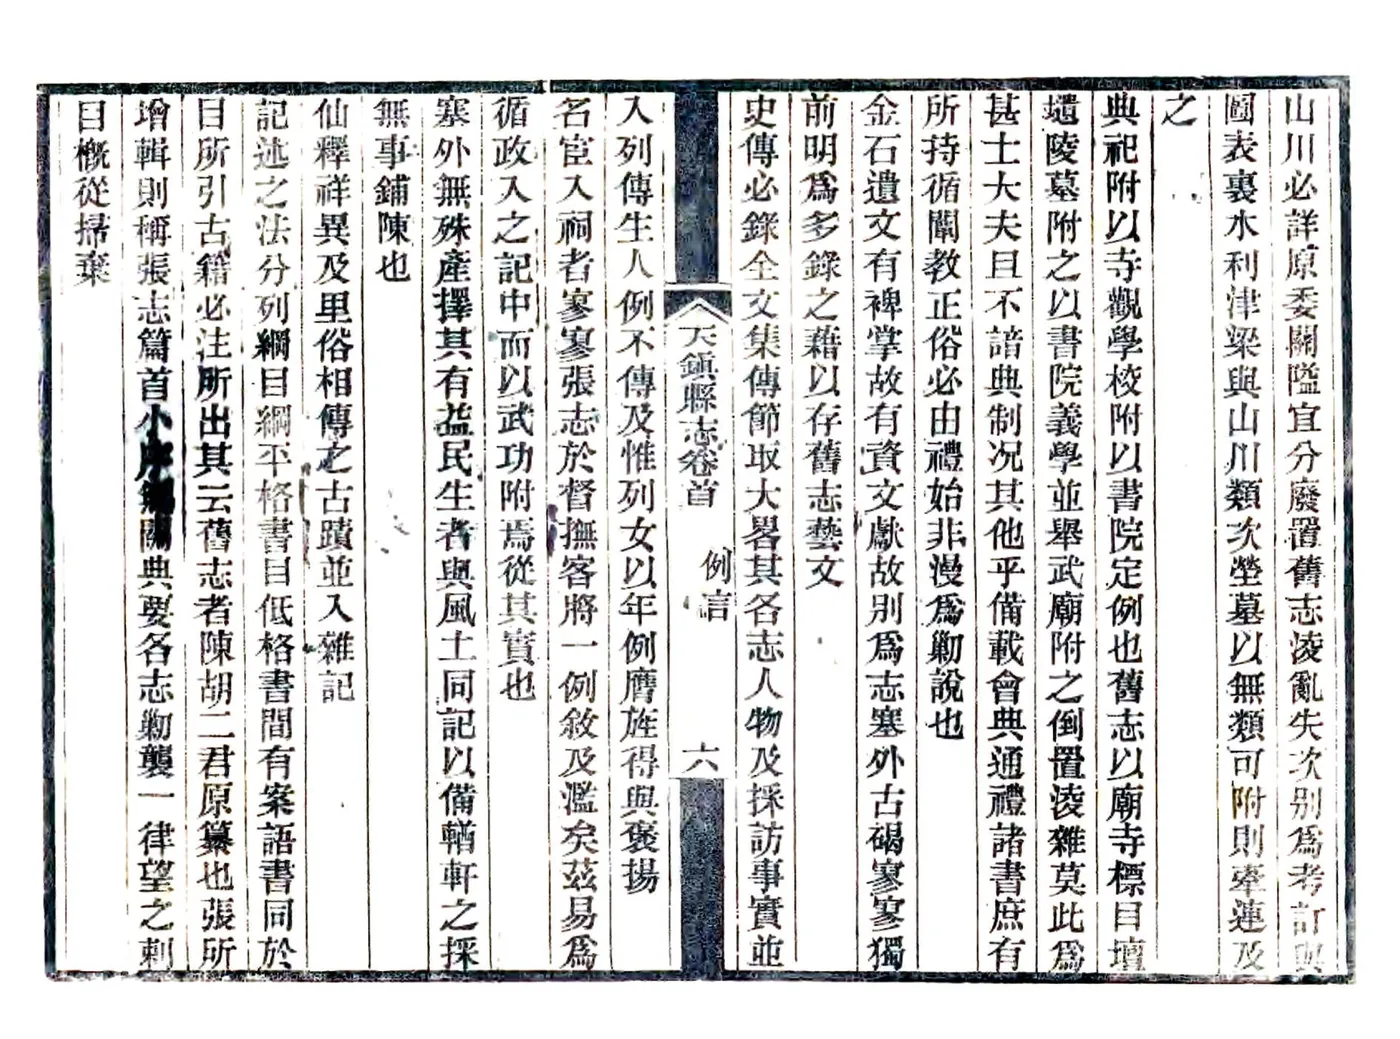 山川必詳原委關隘宜分廢置舊志淩亂失次別爲考訂與
圖表裏水利津梁與山川類次塋墓以無類可附則牽連及
之
典祀附以寺觀學校附以書院定例也舊志以廟寺標目壇
壝陵墓附之以書院義學並舉武廟附之倒置淩雜莫此爲
甚士大夫且不諳典制况其他乎備載會典通禮諸書庶有
所持循闡教正俗必由禮始非漫爲勦說也
金石遺文有裨掌故有資文獻故別爲志塞外古碣寥寥獨
前明爲多錄之藉以存舊志藝文
史傳必錄全文集傳節取大畧其各志人物及採訪事實並
天鎭縣志卷首
例言
六
入列傳生人例不傳及惟列女以年例膺旌得與褒揚
名宦入祠者寥寥張志於督撫客將一例敘及濫矣茲易爲
循政入之記中而以武功附焉從其實也
塞外無殊產擇其有益民生者與風土同記以備輶軒之採
無事鋪陳也
仙釋祥異及里俗相傳之古蹟並入雜記
記述之法分列綱目綱平格書目低格書間有案語書同於
目所引古籍必注所出其云舊志者陳胡二君原纂也張所
增輯則稱張志篇首小序無關典要各志勦襲一律望之刺
目槪從掃棄